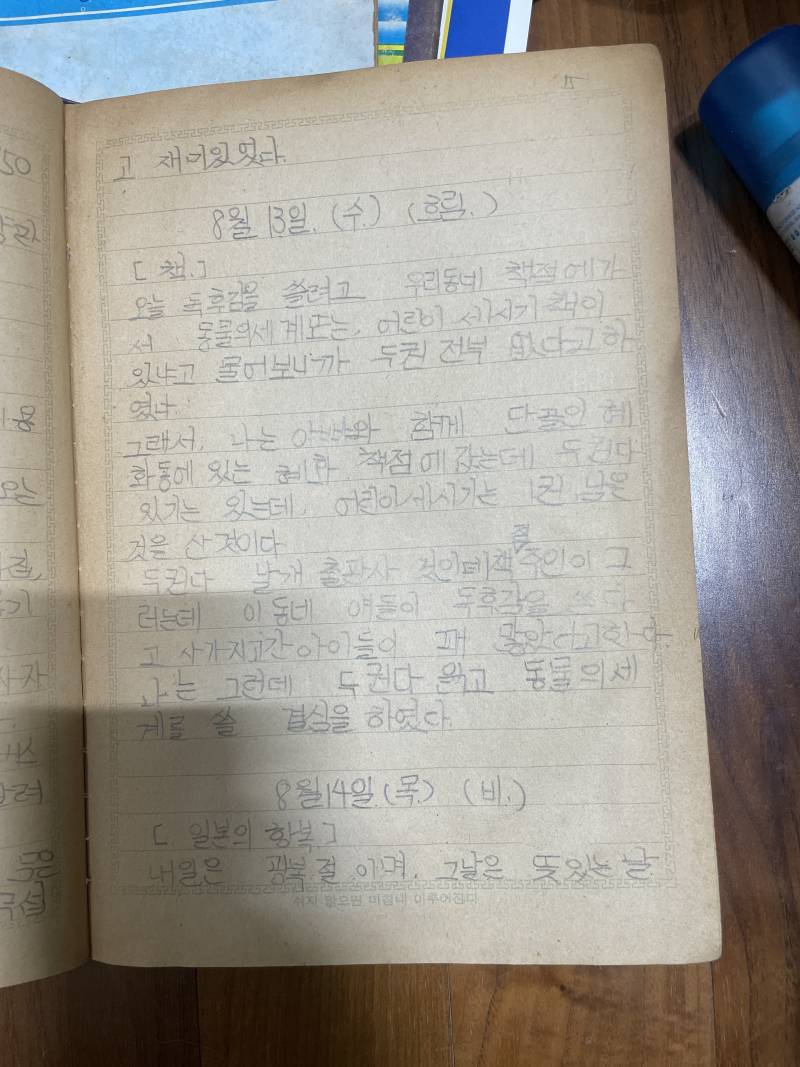 15
고 재미있었다.
8월 13일. (수.) (흐림.)
[책.]
오늘 독후감을 쓸려고 우리동네 책점에가
서 동물의세계또는, 어린이 세시기 책이
있냐고 물어보니까 두권 전부 없다고 하
였다.
그래서, 나는 아빠와 함께 단골인 혜
화동에 있는 혜화 책점에 갔는데 두권다
있기는 있는데, 어린이세시기는 1권 남은
것을 산것이다
두권다 날개 출판사 것인데 책점주인이 그
러는데 이동네 얘들이 독후감을 쓴다
고 사가지고간 아이들이 꽤 많았다고한다.
나는 그런데 두권다 읽고 동물의세
계를 쓸 결심을 하였다.
8월 14일. (목.) (비.)
[일본의 항복]
내일은 광복절 이며, 그날은 뜻있는 날
쉬지 않으면 마침내 이루어진다
50